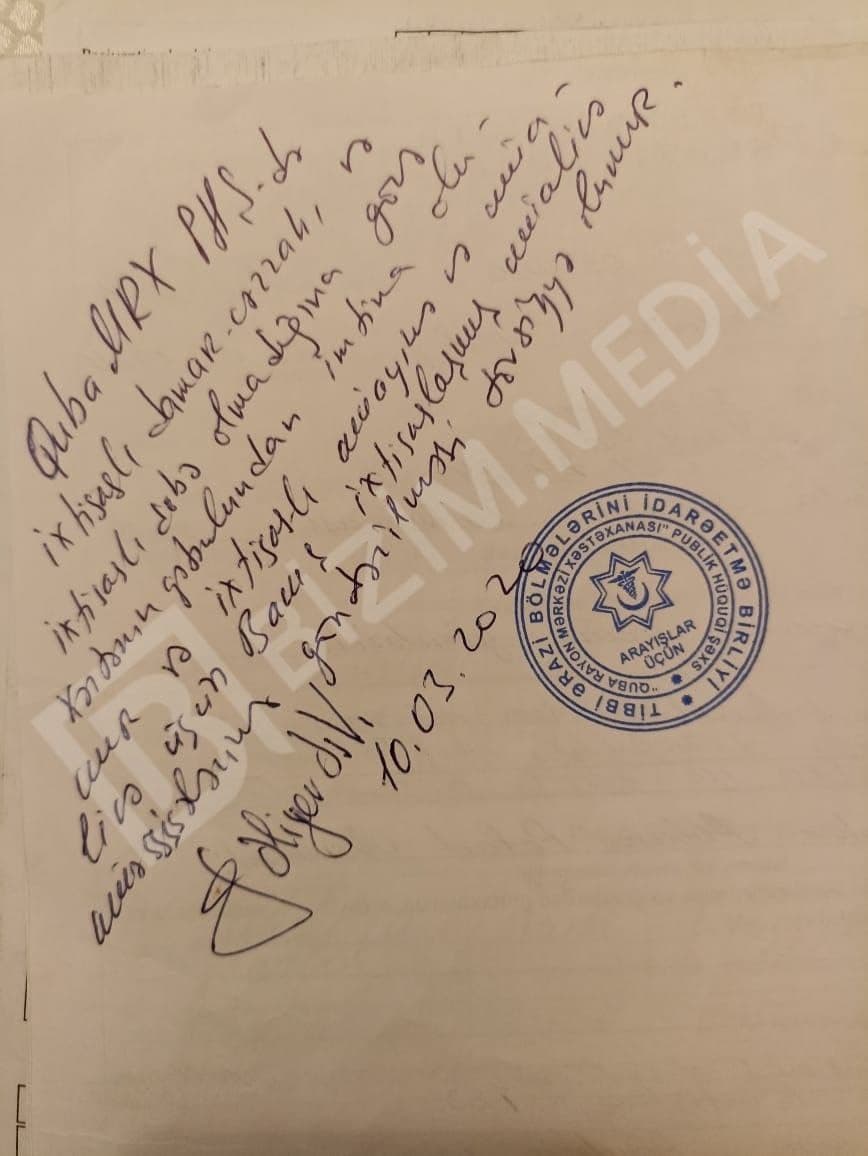 Quba MRX PHŞ-də
ixtisaslı damar-cərrah, və
ixtisaslı şöbə olmadığına görə
xəstənin qəbulundan imtina olu-
nur və ixtisaslı müayinə və müa-
licə üçün Bakı ş ixtisaslaşmış müalicə
müəssisələrinə göndərilməsi tövsiyyə olunur.
Əliyev
10.03.202
TİBBİ ƏRAZİ BÖLMƏLƏRİNİ İDARƏETMƏ BİRLİYİ
"QUBA RAYON MƏRKƏZİ XƏSTƏXANASI" PUBLİK HÜQUQİ ŞƏXS
ARAYIŞLAR
ÜÇÜN
BIZIM.MEDİA